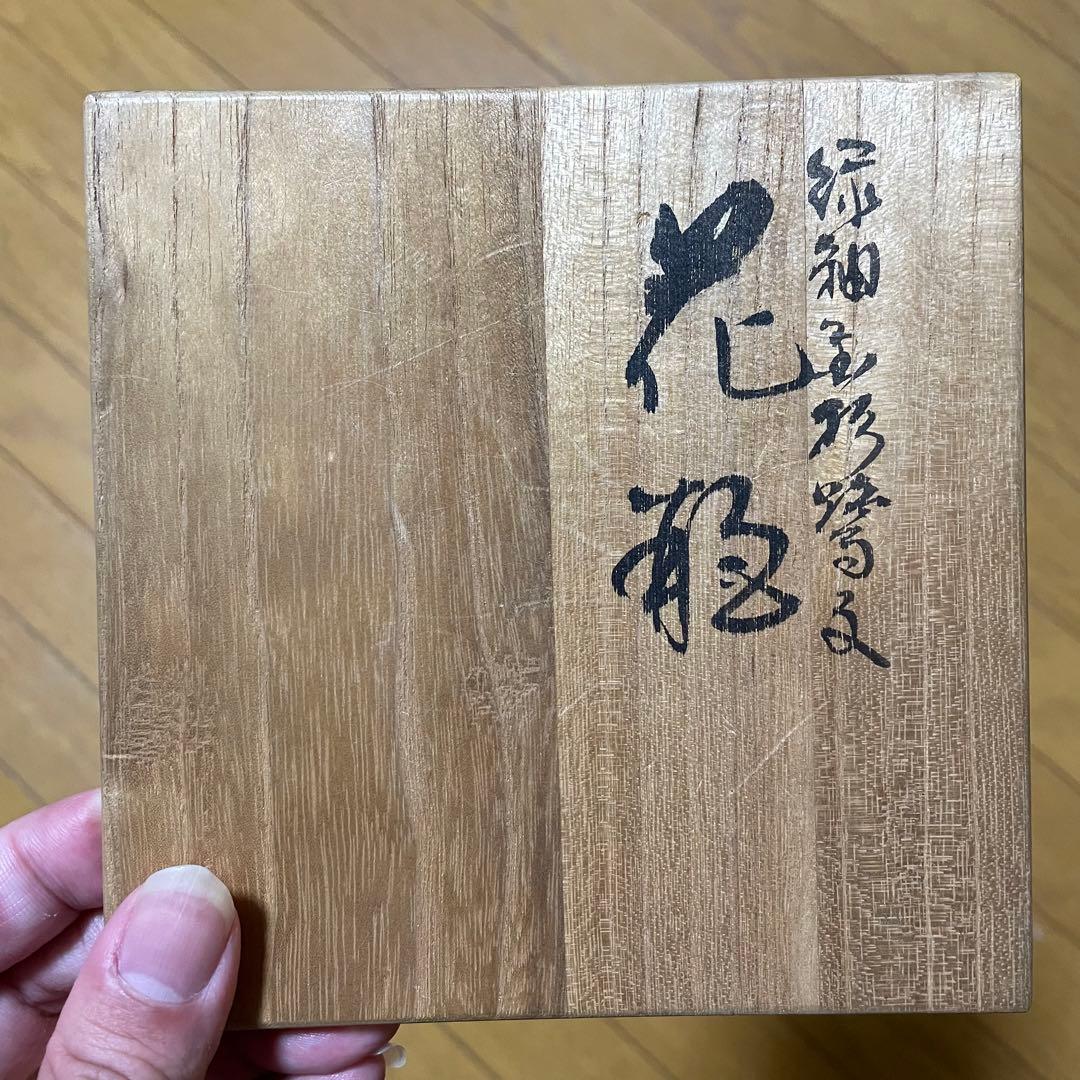 緑釉金彩鷺文
花瓶